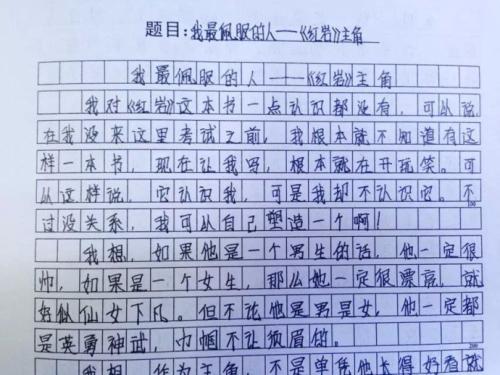 题目:我最佩服的人——《红岩》主角
我最佩服的人——《红岩》主角
我对《红岩》这本书一点认识都没有,可以说,
在我没来这里考试之前,我根本就不知道有这
样一本书,现在让我写,根本就在开玩笑。可
以这样说,它认识我,可是我却不认识它。不
过没关系,我可以自己塑造一个啊!
100
我想,如果他是一个男生的话,他一定很
帅,如果是一个女生,那么她一定很漂亮,就
好似仙女下凡。但不论他是男是女,他一定都
是英勇神武,巾帼不让须眉的。
200
我想,作为主角,不是单凭他长得好看就